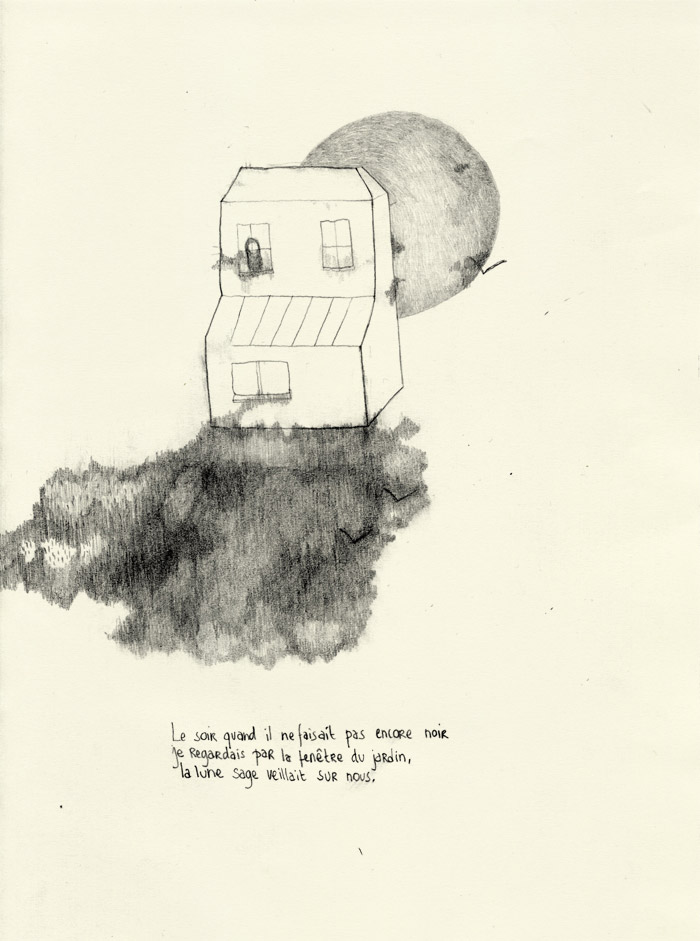 Le soir quand il ne faisait pas encore noir
je regardais par la fenêtre du jardin,
la lune sage veillait sur nous.